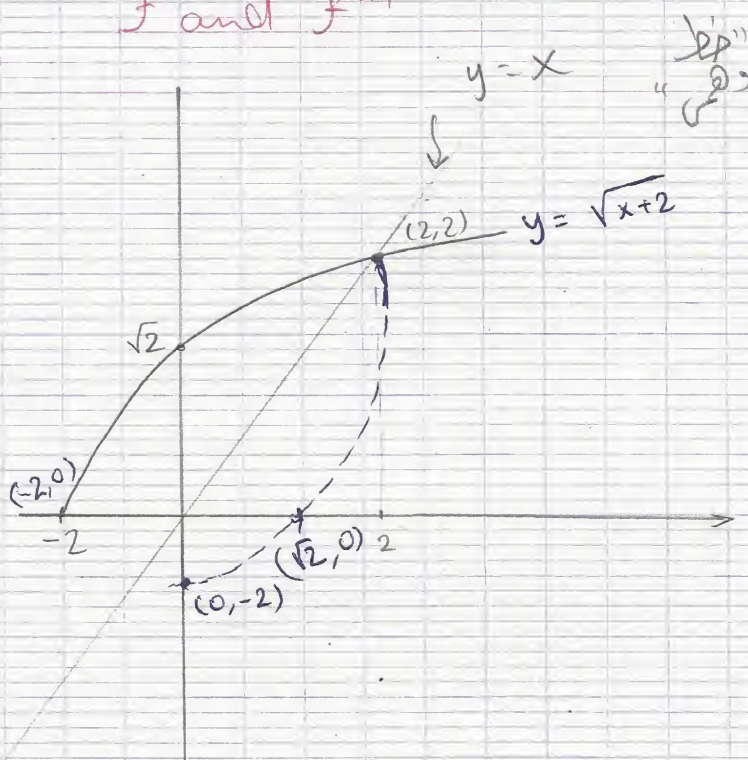 f and f
y = x
(2,2)
y = √x+2
√2
(-2,0)
-2
2
(√2, 0)
(0,-2)